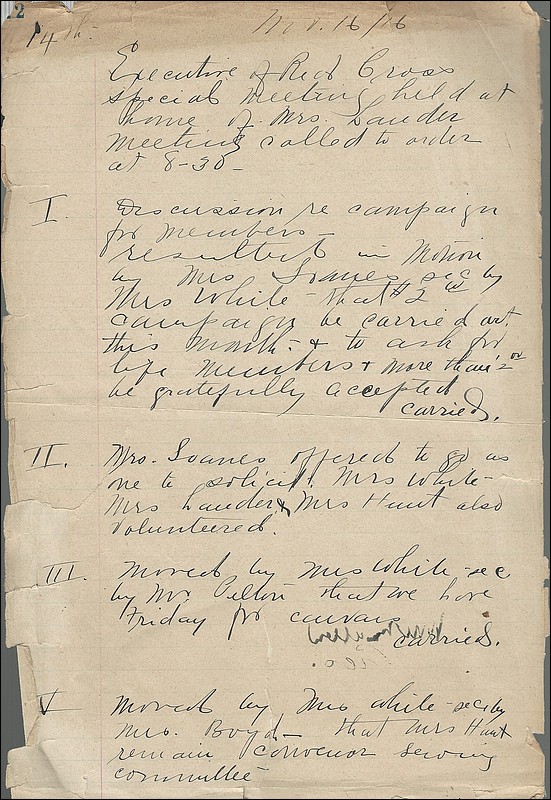 2
14th- Nov. 16/16
Executive of Red Cross
special meeting held at
home of Mrs. Lauder
meeting called to order
at 8-30-
I. Discussion re campaign
for members-
resulted in Motion
by Mrs Soanes sec by
Mrs White - that $2 00
campaign be carried out
this month - & to ask for
life members & more than 2 00
be gratefully accepted
carried.
II. Mrs. Soanes offered to go as
one to solicit. Mrs White-
Mrs Lauder & Mrs Hunt also
volunteered.
III. Moved by Mrs White - sec
by Mr. Pelton that we have
Friday for canvass
carried.
V Moved by Mrs White - sec by
Mrs. Boyd - that Mrs Hunt
remain convenor sewing
committee